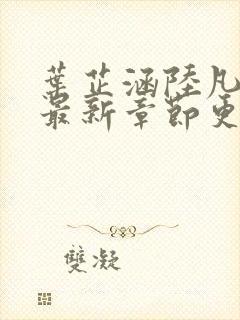 葉芷涵陸凡
最新章節更
雙凝